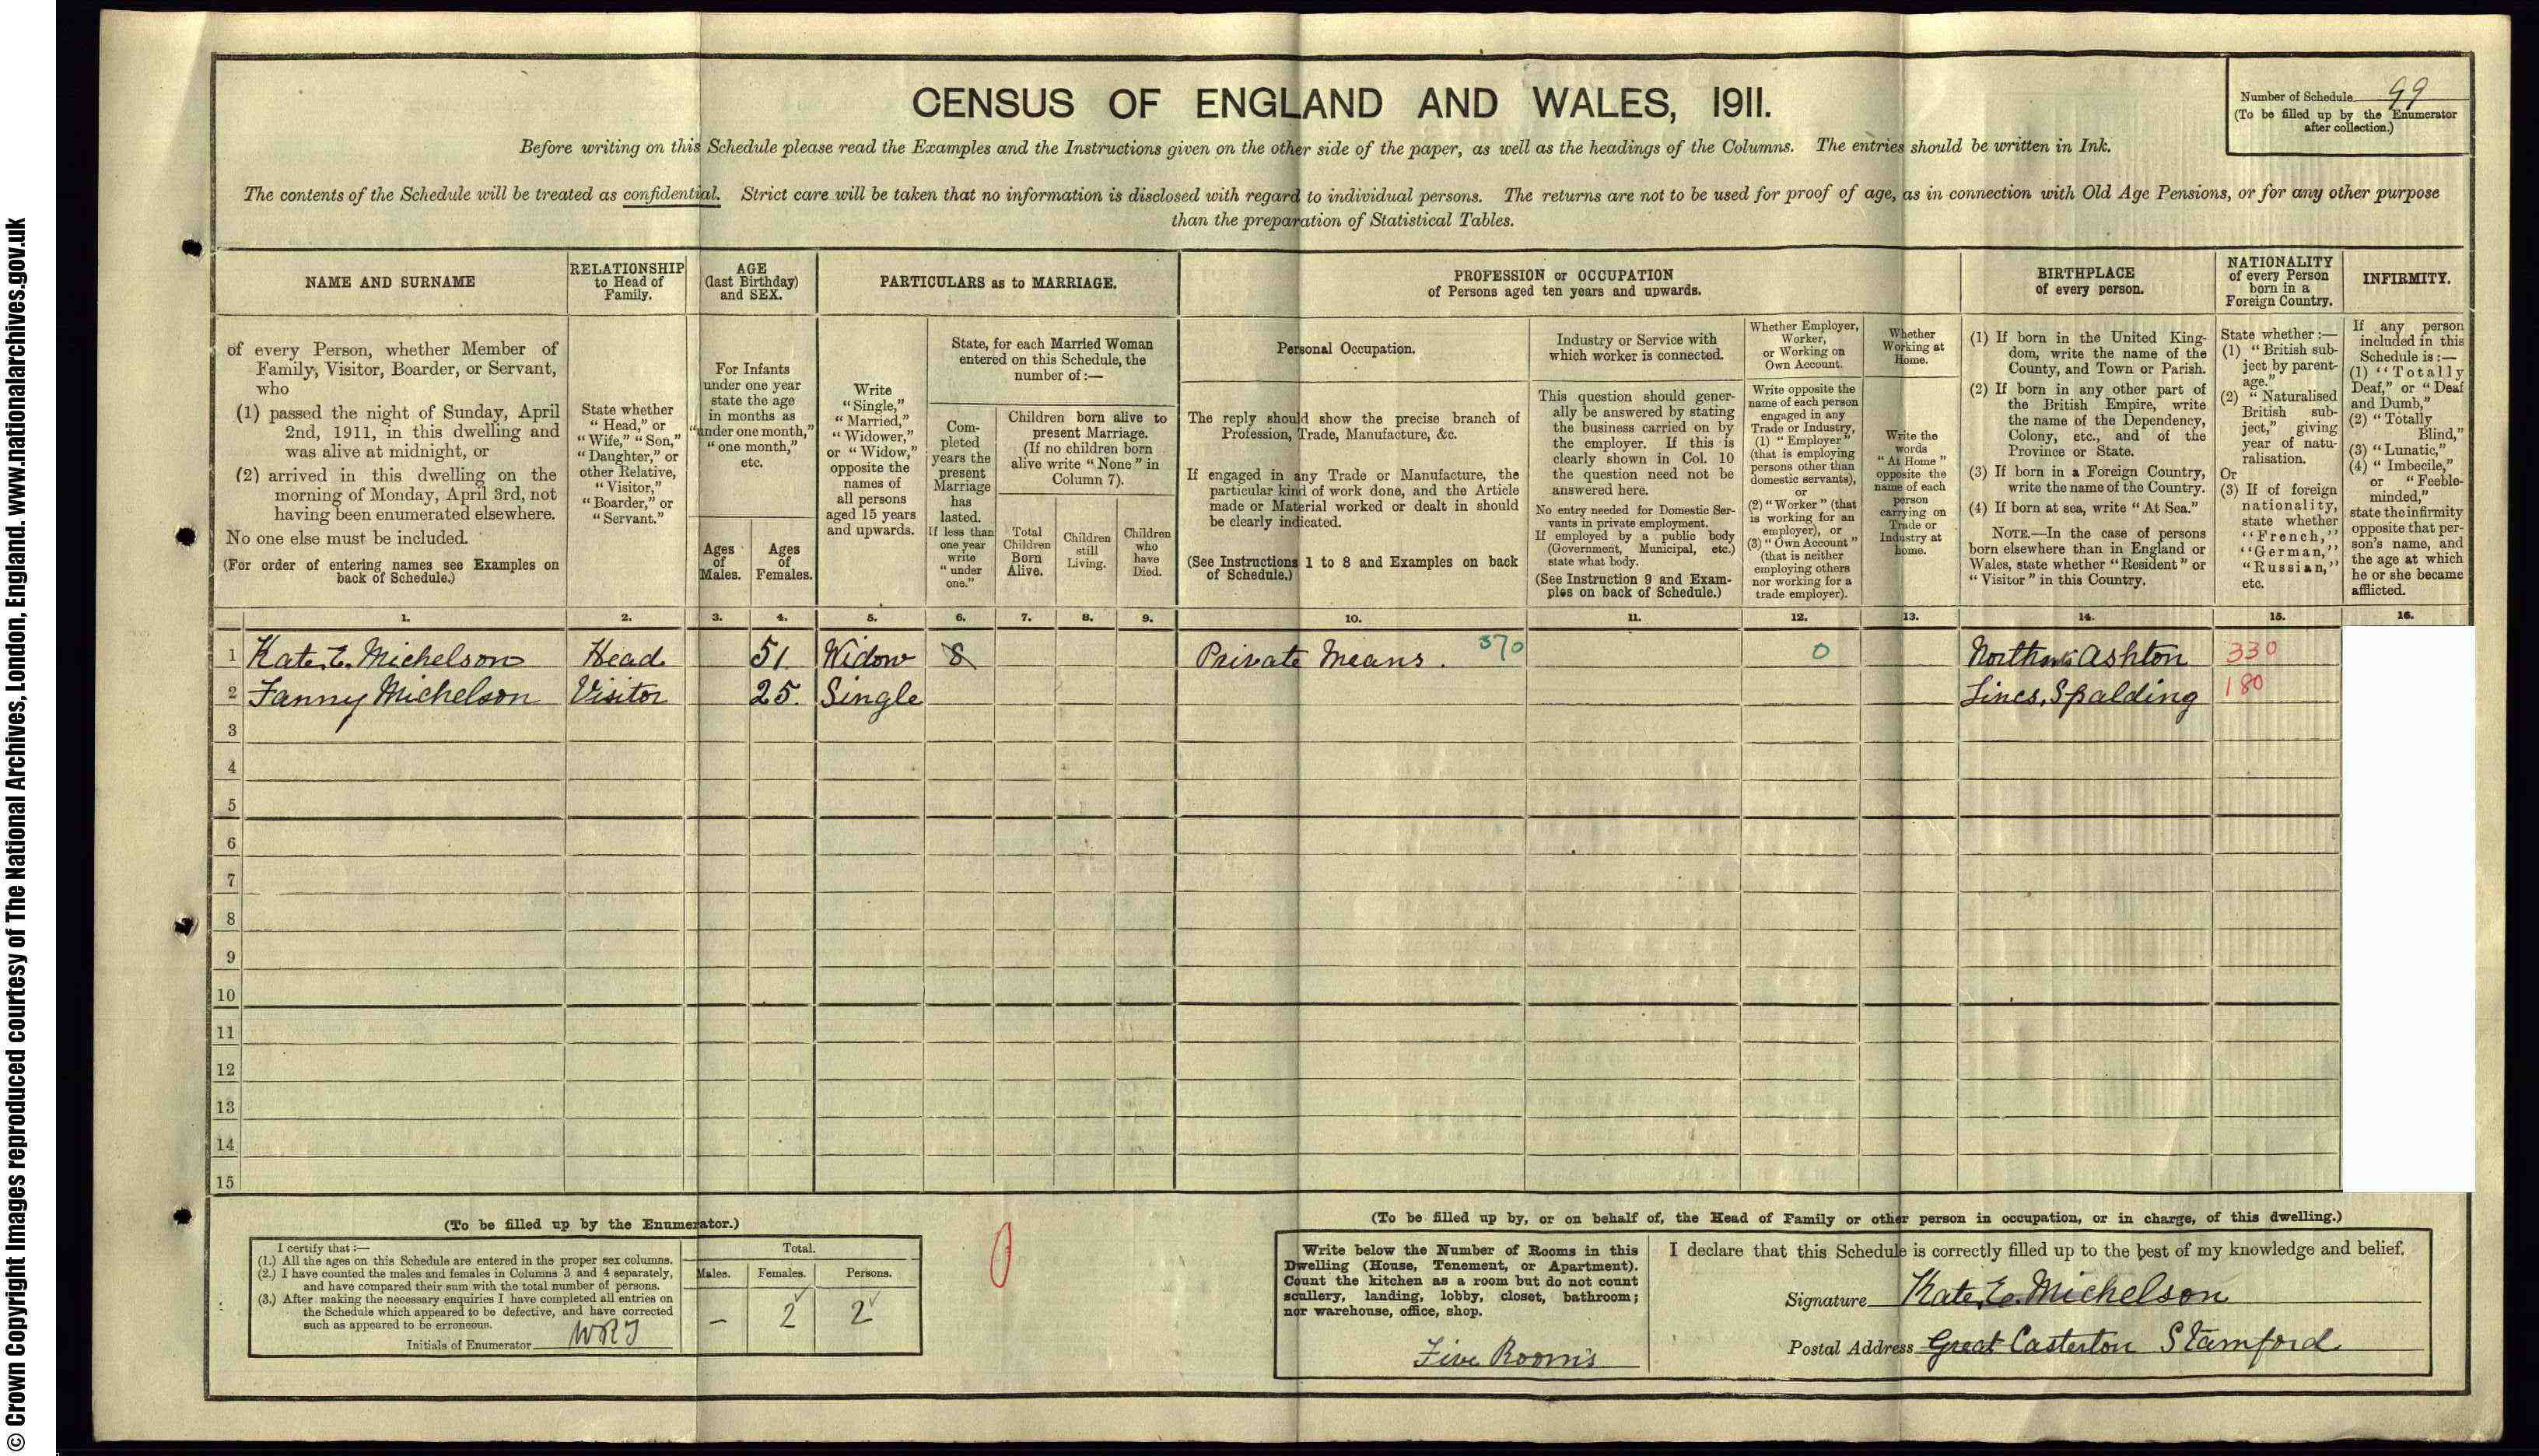 © Crown Copyright Images reproduced courtesy of The National Archives, London, England. www.nationalarchives.gov.uk
CENSUS OF ENGLAND AND WALES, 1911.
Number of Schedule 99
(To be filled up by the Enumerator
after collection.)
Before writing on this Schedule please read the Examples and the Instructions given on the other side of the paper, as well as the headings of the Columns. The entries should be written in Ink.
The contents of the Schedule will be treated as confidential. Strict care will be taken that no information is disclosed with regard to individual persons. The returns are not to be used for proof of age, as in connection with Old Age Pensions, or for any other purpose
than the preparation of Statistical Tables.
NAME AND SURNAME
of every Person, whether Member of
Family, Visitor, Boarder, or Servant,
who
(1) passed the night of Sunday, April
2nd, 1911, in this dwelling and
was alive at midnight, or
(2) arrived in this dwelling on the
morning of Monday, April 3rd, not
having been enumerated elsewhere.
No one else must be included.
(For order of entering names see Examples on
back of Schedule.)
RELATIONSHIP
to Head of
Family.
State whether
"Head," or
"Wife," "Son,"
"Daughter," or
other Relative,
"Visitor,"
"Boarder," or
"Servant."
AGE
(last Birthday)
and SEX.
For Infants
under one year
state the age
in months as
"under one month,"
"one month,"
etc.
Ages
of
Males.
Ages
of
Females.
PARTICULARS as to MARRIAGE.
Write
"Single,"
"Married,"
"Widower,"
or "Widow,"
opposite the
names of
all persons
aged 15 years
and upwards.
State, for each Married Woman
entered on this Schedule, the
number of:—
Com-
pleted
years the
present
Marriage
has
lasted.
If less than
one year
write
"under
one."
Children born alive to
present Marriage.
(If no children born
alive write "None" in
Column 7).
Total
Children
Born
Alive.
Children
still
Living.
Children
who
have
Died.
PROFESSION or OCCUPATION
of Persons aged ten years and upwards.
Personal Occupation.
The reply should show the precise branch of
Profession, Trade, Manufacture, &c.
If engaged in any Trade or Manufacture, the
particular kind of work done, and the Article
made or Material worked or dealt in should
be clearly indicated.
(See Instructions 1 to 8 and Examples on back
of Schedule.)
Industry or Service with
which worker is connected.
This question should gener-
ally be answered by stating
the business carried on by
the employer. If this is
clearly shown in Col. 10
the question need not be
answered here.
No entry needed for Domestic Ser-
vants in private employment.
If employed by a public body
(Government, Municipal, etc.)
state what body.
(See Instruction 9 and Exam-
ples on back of Schedule.)
Whether Employer,
Worker,
or Working on
Own Account.
Write opposite the
name of each person
engaged in any
Trade or Industry,
(1) "Employer"
(that is employing
persons other than
domestic servants),
or
(2) "Worker" (that
is working for an
employer), or
(3) "Own Account"
(that is neither
employing others
nor working for a
trade employer).
Whether
Working at
Home.
Write the
words
"At Home"
opposite the
name of each
person
carrying on
Trade or
Industry at
home.
BIRTHPLACE
of every person.
(1) If born in the United King-
dom, write the name of the
County, and Town or Parish.
(2) If born in any other part of
the British Empire, write
the name of the Dependency,
Colony, etc., and of the
Province or State.
(3) If born in a Foreign Country,
write the name of the Country.
(4) If born at sea, write "At Sea."
NOTE.—In the case of persons
born elsewhere than in England or
Wales, state whether "Resident" or
"Visitor" in this Country.
NATIONALITY
of every Person
born in a
Foreign Country.
State whether:—
(1) "British sub-
ject by parent-
age."
(2) "Naturalised
British sub-
ject," giving
year of natu-
ralisation.
Or
(3) If of foreign
nationality,
state whether
"French,"
"German,"
"Russian,"
etc.
INFIRMITY.
If any person
included in this
Schedule is:—
(1) "Totally
Deaf," or "Deaf
and Dumb,"
(2) "Totally
Blind,"
(3) "Lunatic,"
(4) "Imbecile,"
or "Feeble-
minded,"
state the infirmity
opposite that per-
son's name, and
the age at which
he or she became
afflicted.
1. 2. 3. 4. 5. 6. 7. 8. 9. 10. 11. 12. 13. 14. 15. 16.
1 Kate. E. Michelson Head 51 Widow 8 Private Means. 370 0 Northants Ashton 330
2 Fanny Michelson Visitor 25. Single Lincs, Spalding 180
3
4
5
6
7
8
9
10
11
12
13
14
15
(To be filled up by the Enumerator.)
I certify that:—
(1.) All the ages on this Schedule are entered in the proper sex columns.
(2.) I have counted the males and females in Columns 3 and 4 separately,
and have compared their sum with the total number of persons.
(3.) After making the necessary enquiries I have completed all entries on
the Schedule which appeared to be defective, and have corrected
such as appeared to be erroneous.
Initials of Enumerator
Total.
Males. Females. Persons.
– 2 2
0
(To be filled up by, or on behalf of, the Head of Family or other person in occupation, or in charge, of this dwelling.)
Write below the Number of Rooms in this
Dwelling (House, Tenement, or Apartment).
Count the kitchen as a room but do not count
scullery, landing, lobby, closet, bathroom;
nor warehouse, office, shop.
Five Rooms
I declare that this Schedule is correctly filled up to the best of my knowledge and belief.
Signature Kate. E. Michelson
Postal Address Great Casterton Stamford